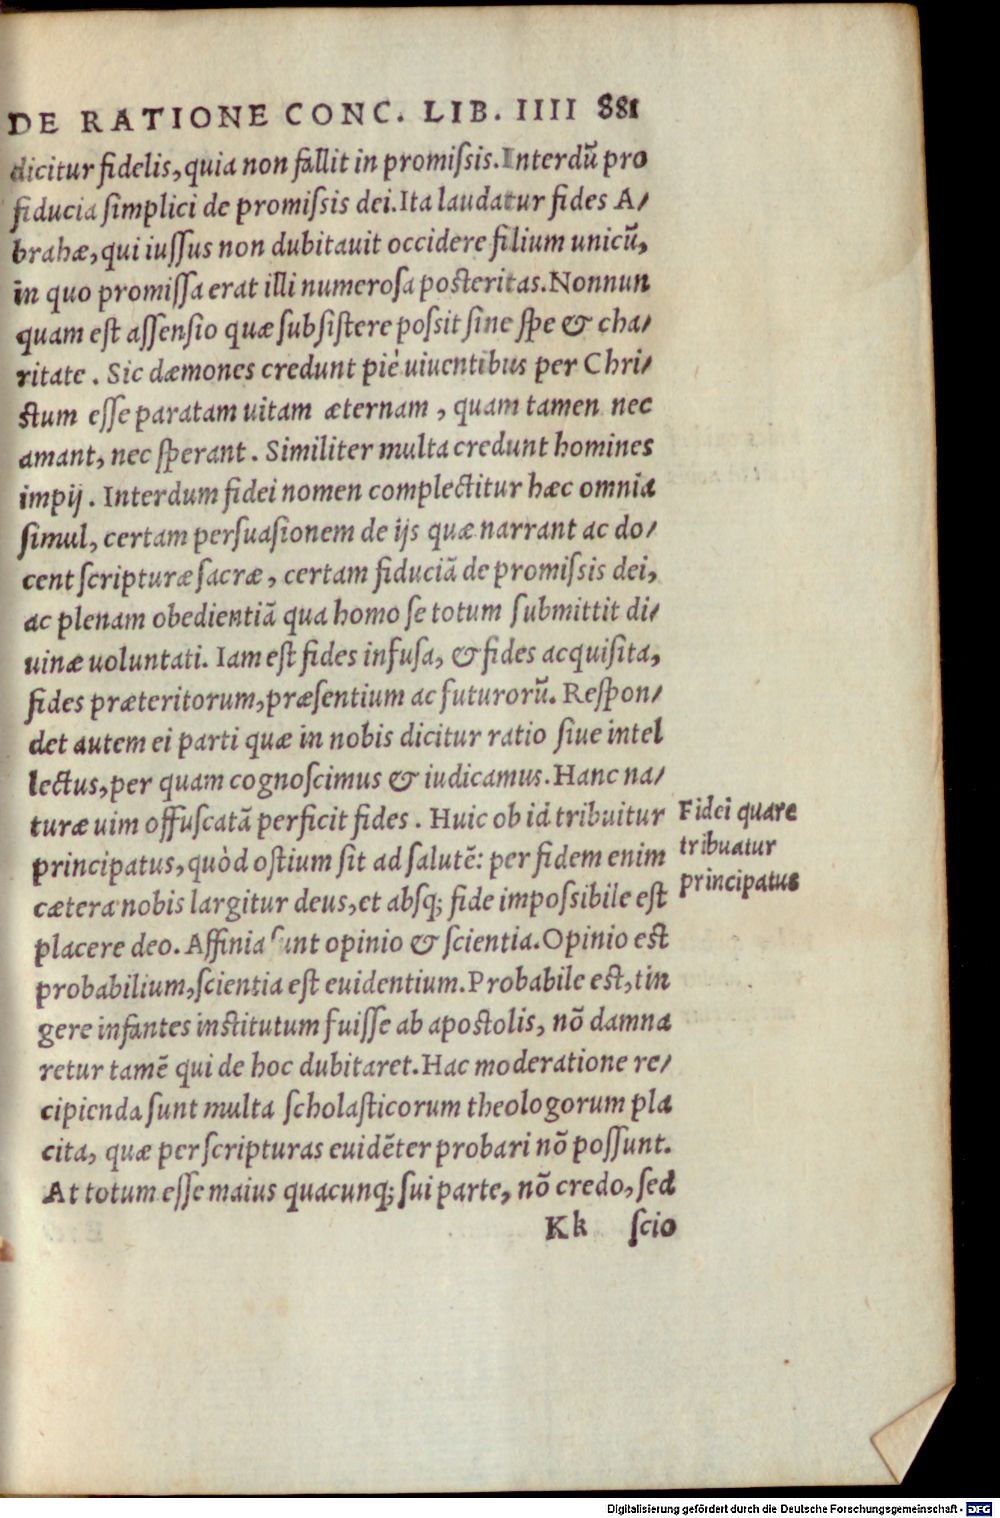 DE RATIONE CONC. LIB. IIII 881
dicitur fidelis, quia non fallit in promiſsis. Interdũ pro
fiducia ſimplici de promiſsis dei. Ita laudatur fides A/
brahæ, qui iuſſus non dubitauit occidere filium unicũ,
in quo promiſſa erat illi numeroſa posteritas. Nonnun
quam eſt aſſenſio quæ ſubſiſtere poſsit ſine ſpe & cha/
ritate. Sic dæmones credunt piè uiuentibus per Chri/
ſtum eſſe paratam uitam æternam, quam tamen nec
amant, nec ſperant. Similiter multa credunt homines
impij. Interdum fidei nomen complectitur hæc omnia
ſimul, certam perſuaſionem de ijs quæ narrant ac do/
cent ſcripturæ ſacræ, certam fiduciã de promiſsis dei,
ac plenam obedientiã qua homo ſe totum ſubmittit di/
uinæ uoluntati. Iam eſt fides infuſa, & fides acquiſita,
fides præteritorum, præſentium ac futurorũ. Reſpon/
det autem ei parti quæ in nobis dicitur ratio ſiue intel
lectus, per quam cognoſcimus & iudicamus. Hanc na/
turæ uim offuſcatã perficit fides. Huic ob id tribuitur
principatus, quòd oſtium ſit ad salutẽ: per fidem enim
cætera nobis largitur deus, et absq; fide impoſsibile eſt
placere deo. Affinia ſunt opinio & ſcientia. Opinio eſt
probabilium, ſcientia eſt euidentium. Probabile eſt, tin
gere infantes inſtitutum fuiſſe ab apoſtolis, nõ damna
retur tamẽ qui de hoc dubitaret. Hac moderatione re/
cipienda ſunt multa ſcholaſticorum theologorum pla
cita, quæ per ſcripturas euidẽter probari nõ poſſunt.
At totum eſſe maius quacunq; ſui parte, nõ credo, ſed
Kk ſcio
Fidei quare
tribuatur
principatus
Digitalisierung gefördert durch die Deutsche Forschungsgemeinschaft - DFG